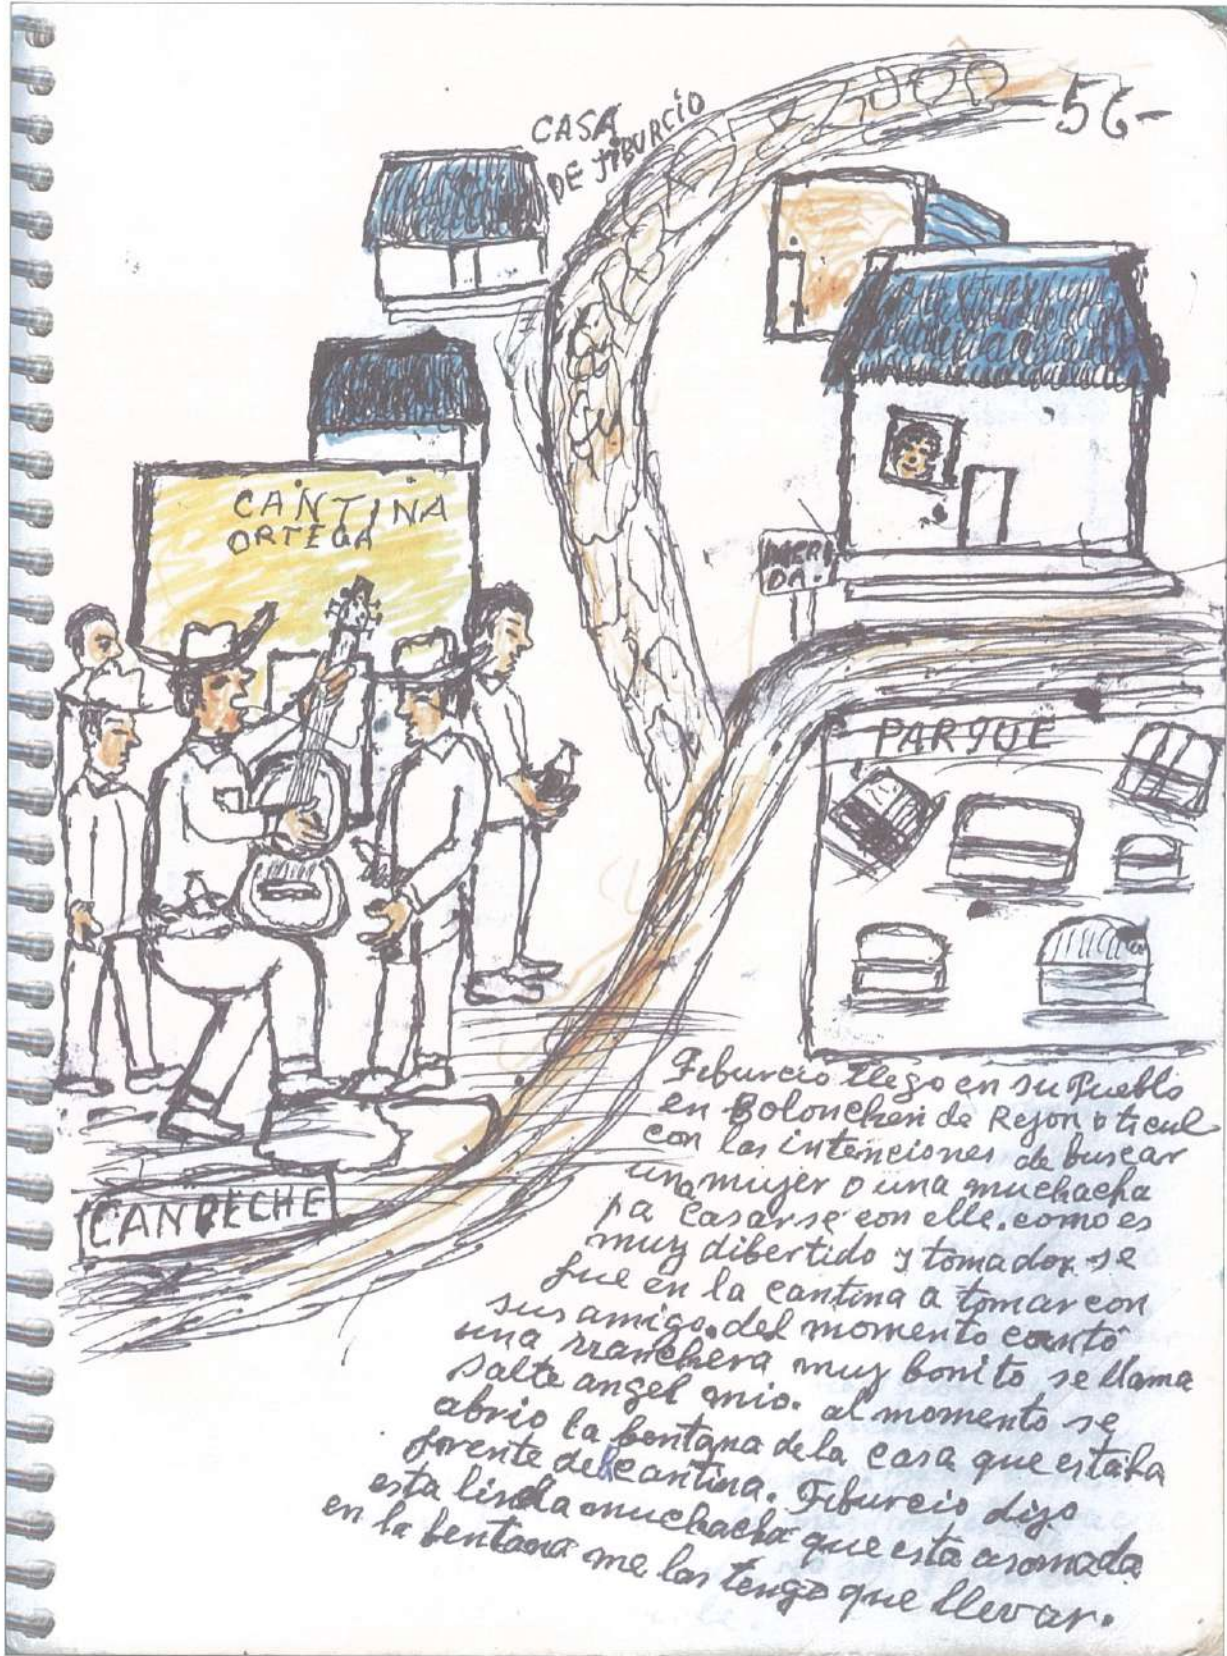 -56-
CASA
DE TIBURCIO
CANTINA
ORTEGA
MERI
DA.
PARQUE
CANPECHE
Tiburcio llego en su Pueblo
en Bolonchen de Rejon o ticul
con las intenciones de buscar
una mujer o una muchacha
pa casarse con elle. como es
muy dibertido y tomador se
fue en la cantina a tomar con
sus amigo. del momento cantó
una rranchera muy bonito se llama
salte angel mio. al momento se
abrio la bentana de la casa que estaba
frente del cantina. Tiburcio dijo
esta linda muchacha que está asomada
en la bentana me las tengo que llevar.